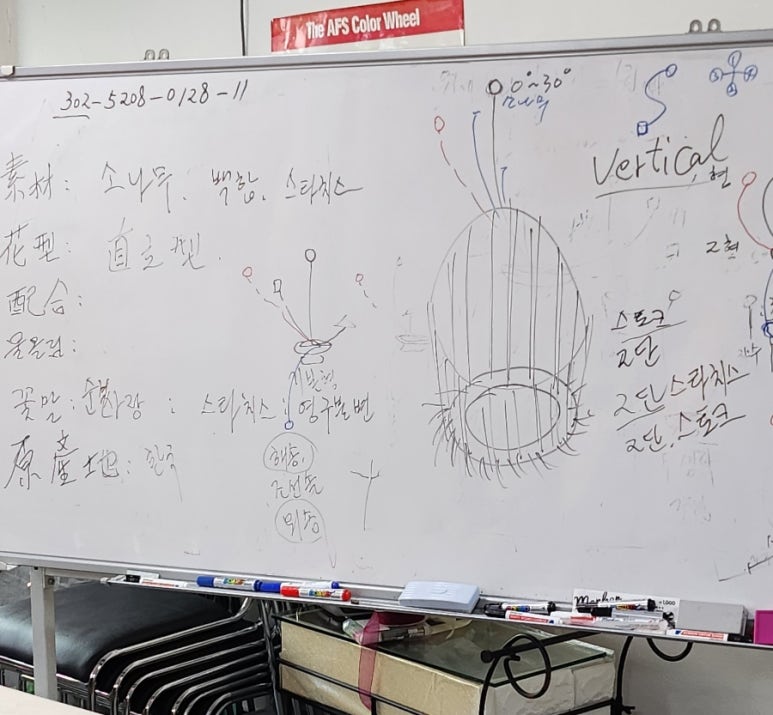 The AFS Color Wheel
302-5208-0128-11
0°~30°
Vertical
素材: 소나무. 백합. 스타치스
花型: 直立型.
配合:
물올림:
꽃말: 순결 사랑 : 스타치스: 영구불변
原産地: 한국
해송
조선솔
스토크
2단
2단 스타치스
2단. 스토크
Marker